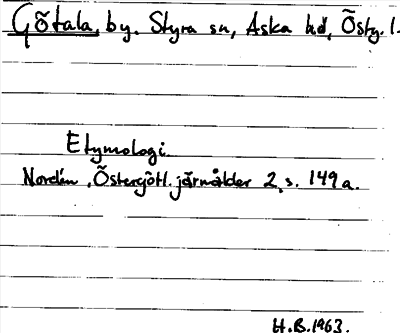 Götala, by. Styra sn, Aska hd, Östg. l.
Etymologi
Nordén, Östergötl. järnålder 2, s. 149 a.
H.B. 1963.